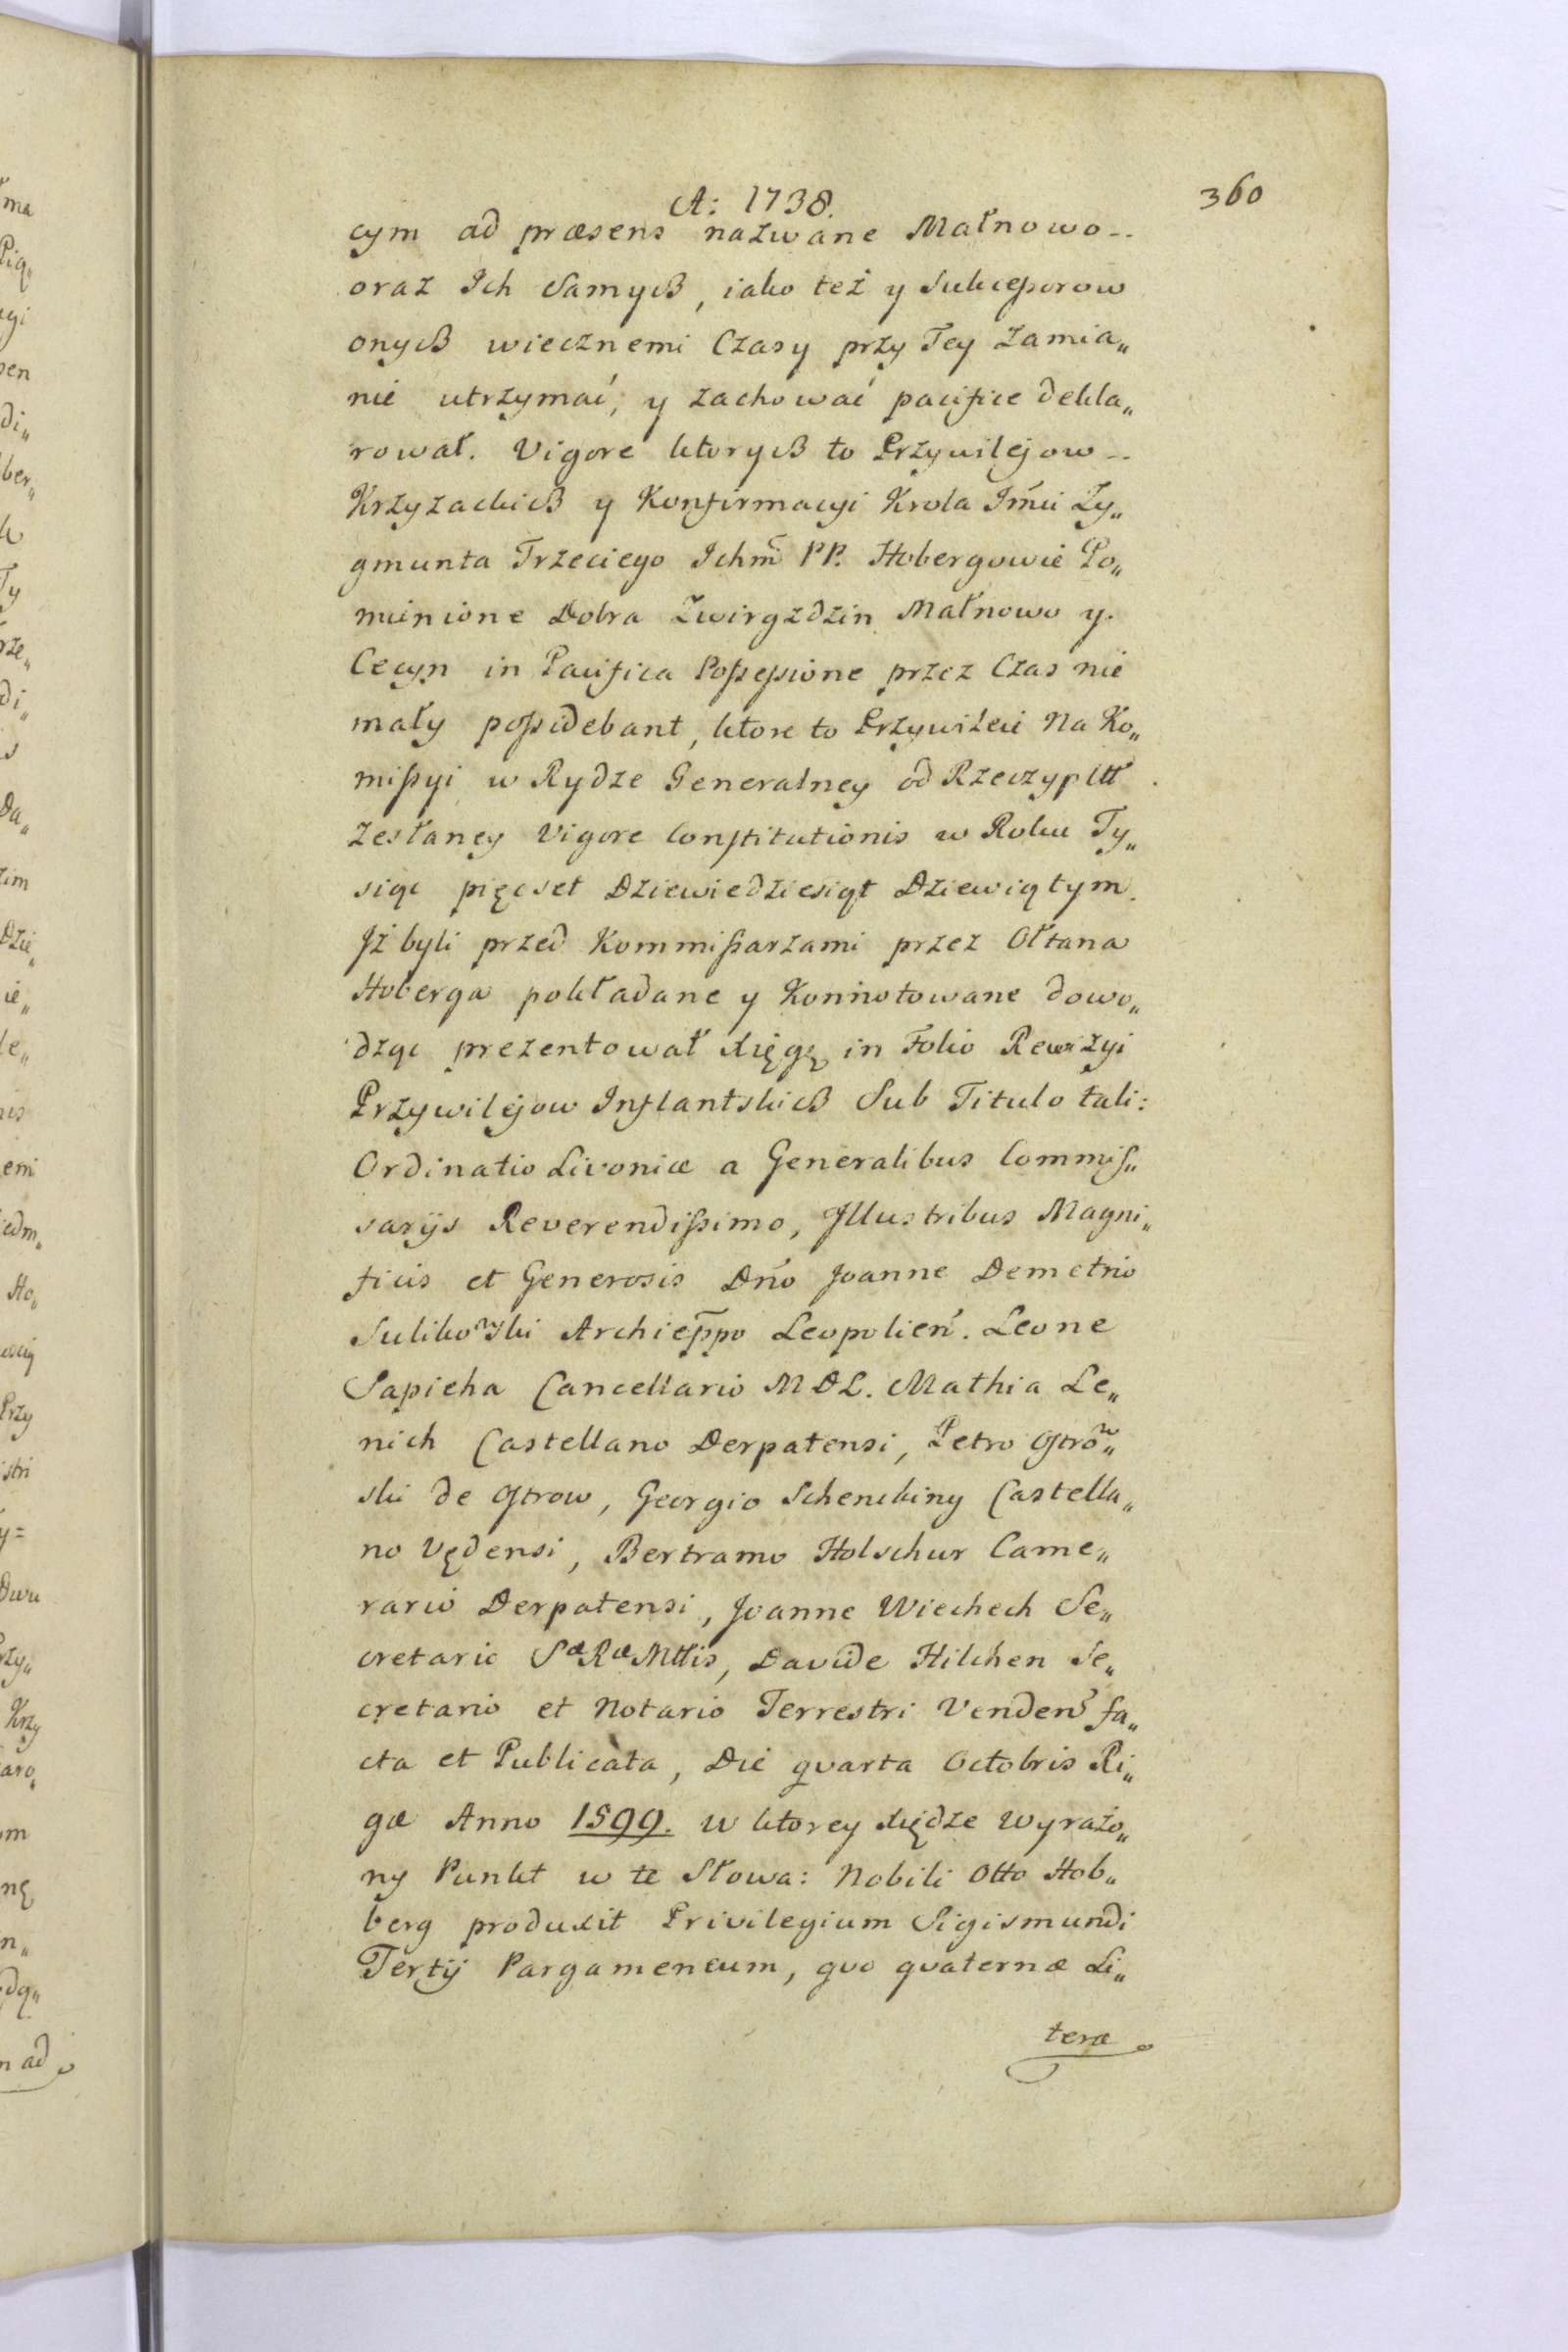 A: 1738.
360
cym ad præsens nazwane Małnowo --
oraz Ich Samych, iako też y Sukceßorow
onych wiecznemi Czasy przy Tey Zamia„
nie utrzymać, y zachować pacifice dekla„
rował. Vigore ktorych to Przywilejow --
Krzyzackich y Konfirmacyi Krola Jmći Zy„
gmunta Trzeciego Ichmć PP. Hobergowie Po„
mienione Dobra Zwirgzdzin Małnowo y
Cecyn in Pacifica Poßeßione przez Czas nie
mały poßidebant, ktore to Przywileie Na Ko„
mißyi w Rydze Generalney od Rzeczypltt
Zesłaney Vigore Constitutionis w Roku Ty„
siąc pięcset Dziewiedziesiąt Dziewiątym.
Jż byli przed Kommißarzami przez Ottana
Hoberga pokładane y Konnotowane dowo„
dząc prezentował xięgę in Folio Rewizyi
Przywilejow Inflantskich Sub Titulo tali:
Ordinatio Livoniæ a Generalibus Commiſ„
sarijs Reverendißimo, Jllustribus Magni„
ficis et Generosis Dńo Joanne Demetrio
Sulikowski Archieppo Leopolień. Leone
Sapieha Cancellario MDL. Mathia Le„
nich Castellano Derpatensi, Petro Ostrow„
ski de Ostrow, Georgio Schenking Castella„
no Vędensi, Bertramo Holschur Came„
rario Derpatensi, Joanne Wiechech Se„
cretario Sæ Ræ Mttis, Davide Hilchen Se„
cretario et Notario Terrestri Vendeń fa„
cta et Publicata, Die qvarta Octobris Ri„
gæ Anno 1599. w ktorey xiędze wyrażo„
ny Punkt w te Słowa: Nobili Otto Hob„
berg produxit Privilegium Sigismundi
Tertij Pargameneum, qvo qvaternæ Li„
teræ